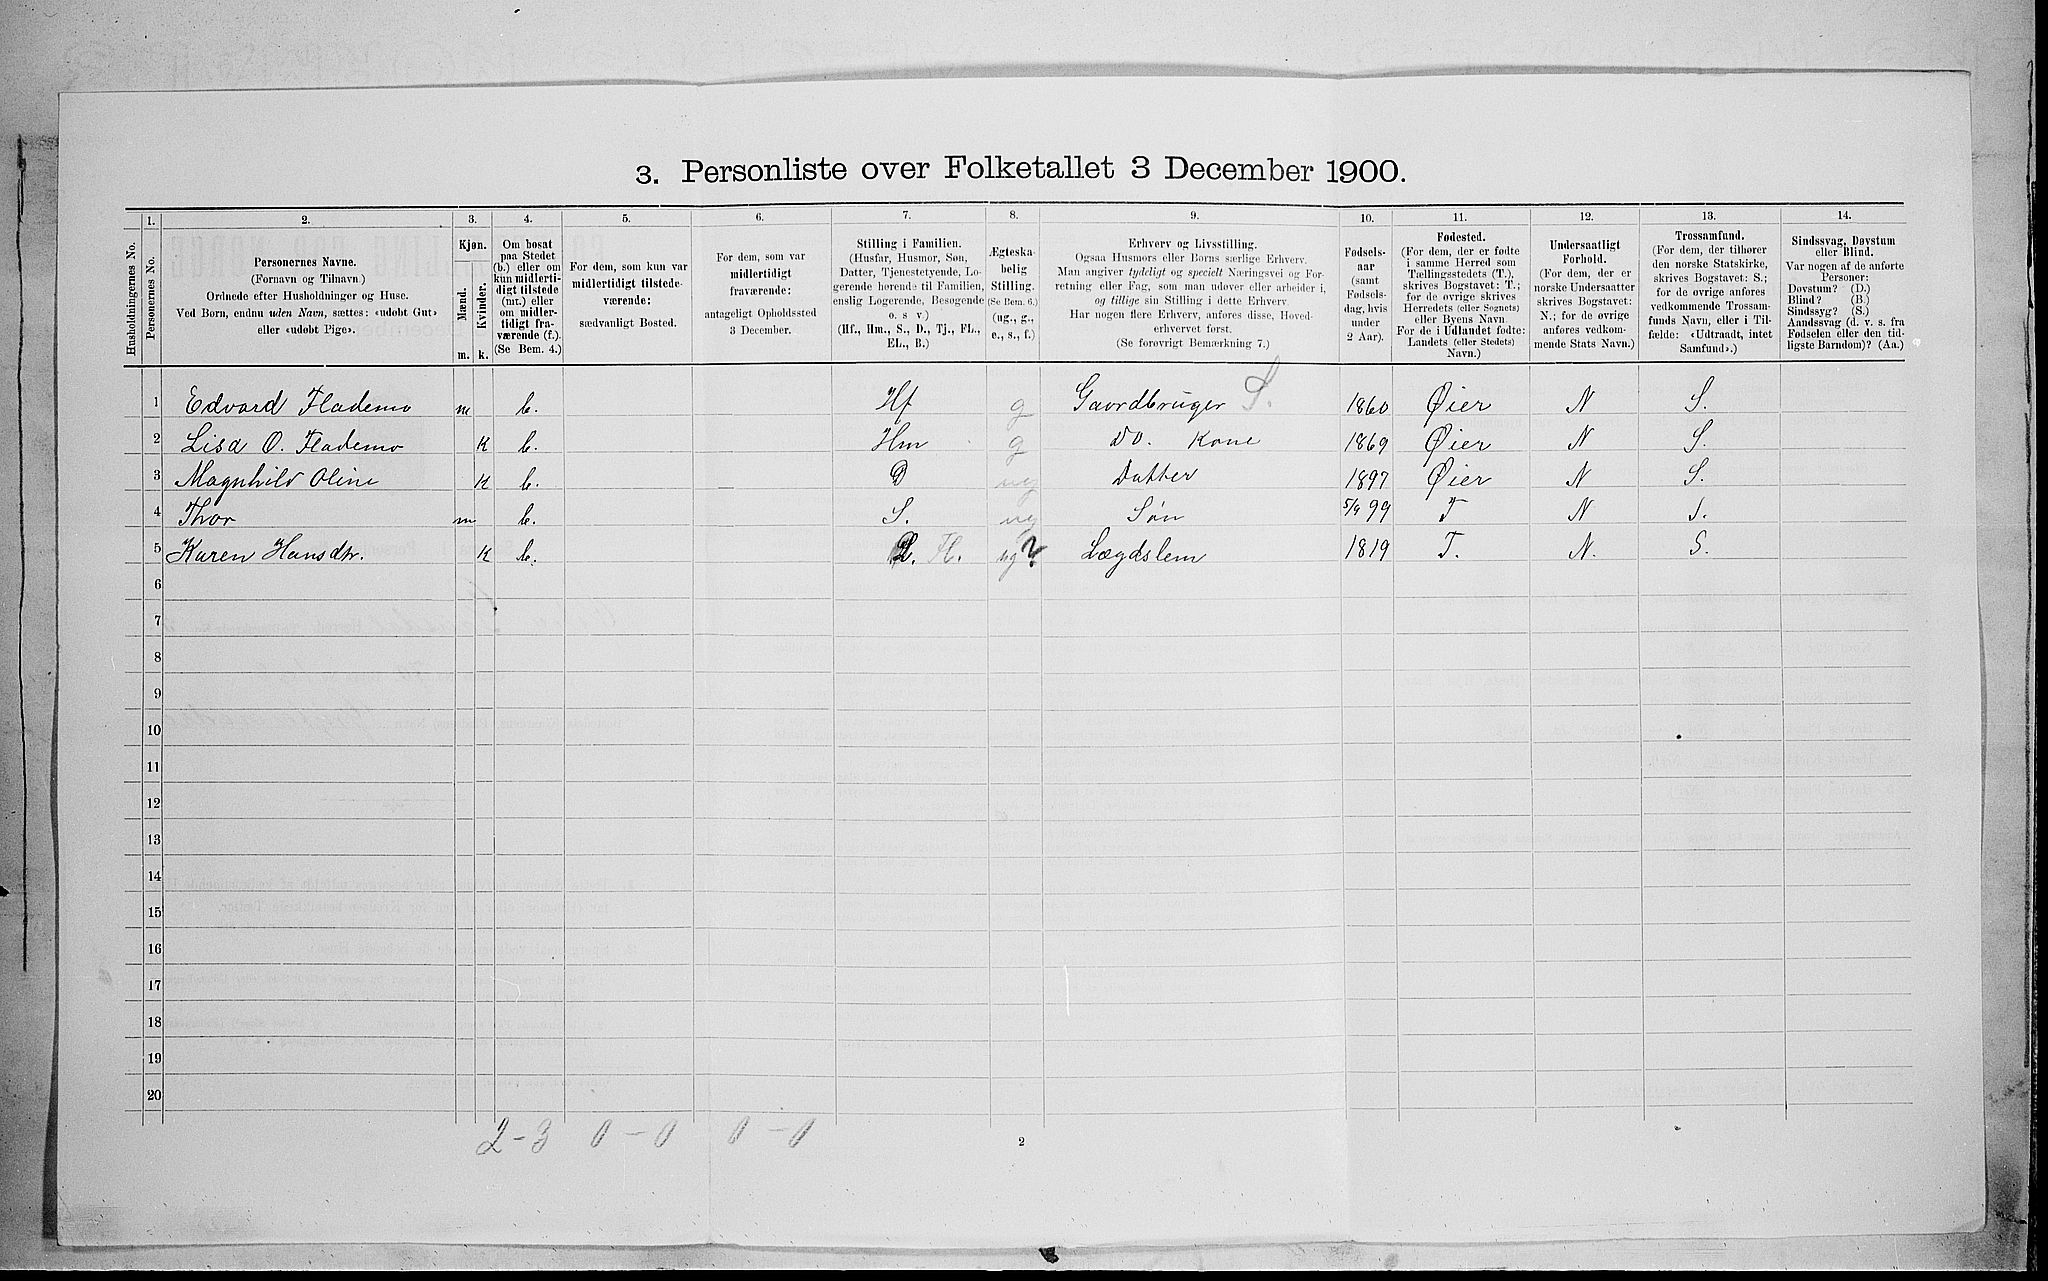 3. Personliste over Folketallet 3 December 1900.
1. 2. 3. 4. 5. 6. 7. 8. 9. 10. 11. 12. 13. 14.
Husholdningernes No.
Personernes No.
Personernes Navne.
(Fornavn og Tilnavn)
Ordnede efter Husholdninger og Huse.
Ved Børn, endnu uden Navn, sættes: «udøbt Gut»
eller «udøbt Pige».
Kjøn.
Mænd.
Kvinder.
m. k.
Om bosat
paa Stedet
(b.) eller om
kun midlerti-
digt tilstede
(mt.) eller
om midler-
tidigt fra-
værende (f.).
(Se Bem. 4.)
For dem, som kun var
midlertidigt tilstede-
værende:
sædvanligt Bosted.
For dem, som var
midlertidigt
fraværende:
antageligt Opholdssted
3 December.
Stilling i Familien.
(Husfar, Husmor, Søn,
Datter, Tjenestetyende, Lo-
gerende hørende til Familien,
enslig Logerende, Besøgende
o. s v.)
(Hf., Hm., S., D., Tj., FL.,
EL., B.)
Ægteska-
belig
Stilling.
(Se Bem. 6.)
(ug., g.,
e., s., f.)
Erhverv og Livsstilling.
Ogsaa Husmors eller Børns særlige Erhverv.
Man angiver tydeligt og specielt Næringsvei og For-
retning eller Fag, som man udøver eller arbeider i,
og tillige sin Stilling i dette Erhverv.
Har nogen flere Erhverv, anføres disse, Hoved-
erhvervet først.
(Se forøvrigt Bemærkning 7.)
Fødsels-
aar
(samt
Fødsels-
dag, hvis
under
2 Aar).
Fødested.
(For dem, der er fødte
i samme Herred som
Tællingsstedets (T.),
skrives Bogstavet: T.;
for de øvrige skrives
Herredets (eller Sognets)
eller Byens Navn.
For de i Udlandet fødte:
Landets (eller Stedets)
Navn.)
Undersaatligt
Forhold.
(For dem, der er
norske Undersaatter
skrives Bogstavet:
N.; for de øvrige
anføres vedkom-
mende Stats Navn.)
Trossamfund.
(For dem, der tilhører
den norske Statskirke,
skrives Bogstavet: S.;
for de øvrige anføres
vedkommende Trossam-
funds Navn, eller i Til-
fælde: «Udtraadt, intet
Samfund».)
Sindssvag, Døvstum
eller Blind.
Var nogen af de anførte
Personer:
Døvstum? (D.)
Blind? (B.)
Sindssyg? (S.)
Aandssvag (d. v. s. fra
Fødselen eller den tid-
ligste Barndom)? (Aa.)
1 Edvard Flademo m b. Hf g Gaardbruger S. 1860 Øier N S.
2 Lisa O. Flademo K b. Hm g do. Kone 1869 Øier N S.
3 Magnhild Oline K b. D ug Datter 1897 Øier N S.
4 Thor m b. S. ug Søn 5/9 99 T N S.
5 Karen Hansdtr. K b. H. ug ? Lægdslem 1819 T. N. S.
6
7
8
9
10
11
12
13
14
15
16
17
18
19
20
2-3 0-0 0-0
2